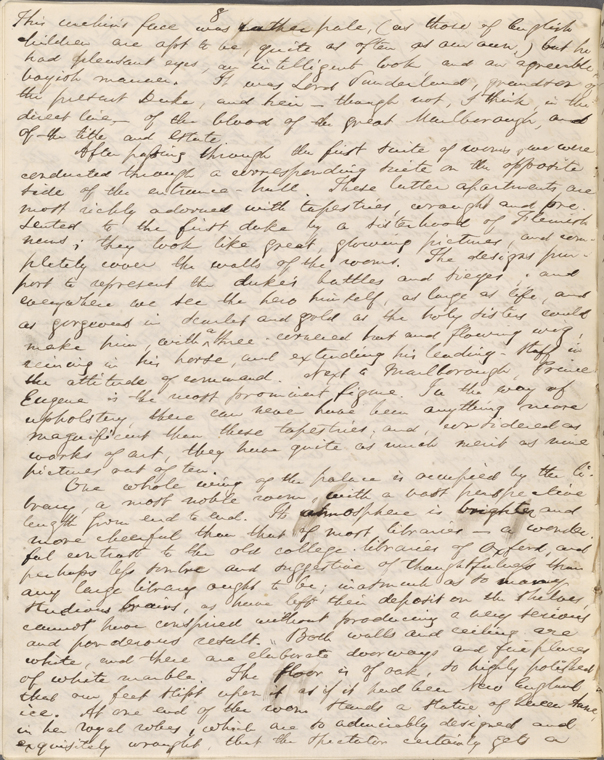 8
This urchin's face was rather pale, (as those of English
children are apt to be, quite as often as our own,) but he
had pleasant eyes, an intelligent look and an agreeable
boyish manner. It was Lord Sunderland, grandson of
the present Duke, and heir — though not, I think, in the
direct line — of the blood of the great Marlborough, and
of the title and estate.
After passing through the first suite of rooms, we were
conducted through a corresponding suite on the opposite
side of the entrance-hall. These latter apartments are
most richly adorned with tapestries, wrought and pre-
sented to the first duke by a sisterhood of Flemish
nuns; they look like great, glowing pictures, and com-
pletely cover the walls of the rooms. The designs pur-
port to represent the duke's battles and sieges; and
everywhere we see the hero himself, as large as life, and
as gorgeous in scarlet and gold as the holy sisters could
make him, with a three-cornered hat and flowing wig,
reining in his horse, and extending his leading-staff in
the attitude of command. Next to Marlborough, Prince
Eugene is the most prominent figure. In the way of
upholstery, there can never have been anything more
magnificent than these tapestries; and, considered as
works of art, they have quite as much merit as nine
pictures out of ten.
One whole wing of the palace is occupied by the li-
brary, a most noble room, with a vast perspective
length from end to end. Its atmosphere is brighter and
more cheerful than that of most libraries — a wonder-
ful contrast to the old college-libraries of Oxford, and
perhaps less sombre and suggestive of thoughtfulness than
any large library ought to be; inasmuch as so many
studious brains, as have left their deposit on the shelves,
cannot have conspired without producing a very serious
and ponderous result. Both walls and ceiling are
white, and there are elaborate doorways and fireplaces
of white marble. The floor is of oak, so highly polished
that our feet slipt upon it as if it had been New England
ice. At one end of the room stands a statue of Queen Anne,
in her royal robes, which are so admirably designed and
exquisitely wrought, that the spectator certainly gets a